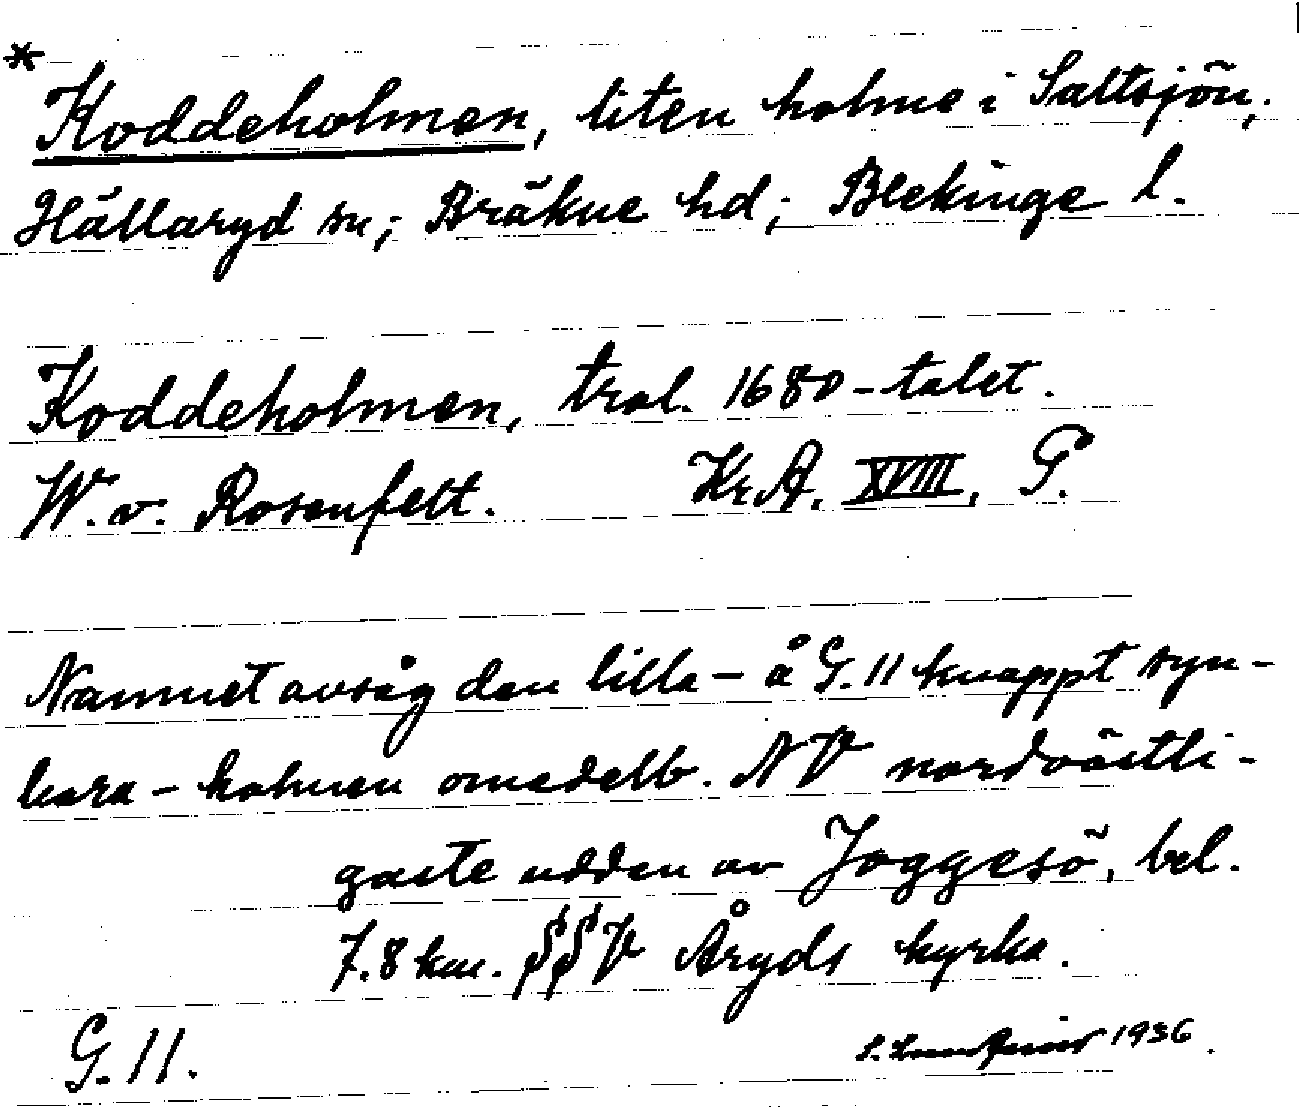 * Koddeholmen, liten holme i Saltsjön,
Hällaryd sn; Bräkne hd; Blekinge l.
Koddeholmen, trol. 1680-talet.
W. v. Rosenfelt. Kr.A. XVIII, P.
Namnet avsåg den lilla - å G. 11 knappt syn-
bara - holmen omedelb. NV nordvästli-
gaste udden av Joggesö, bel.
7.8 km. SSV Åryds kyrka.
G. 11. 1936.